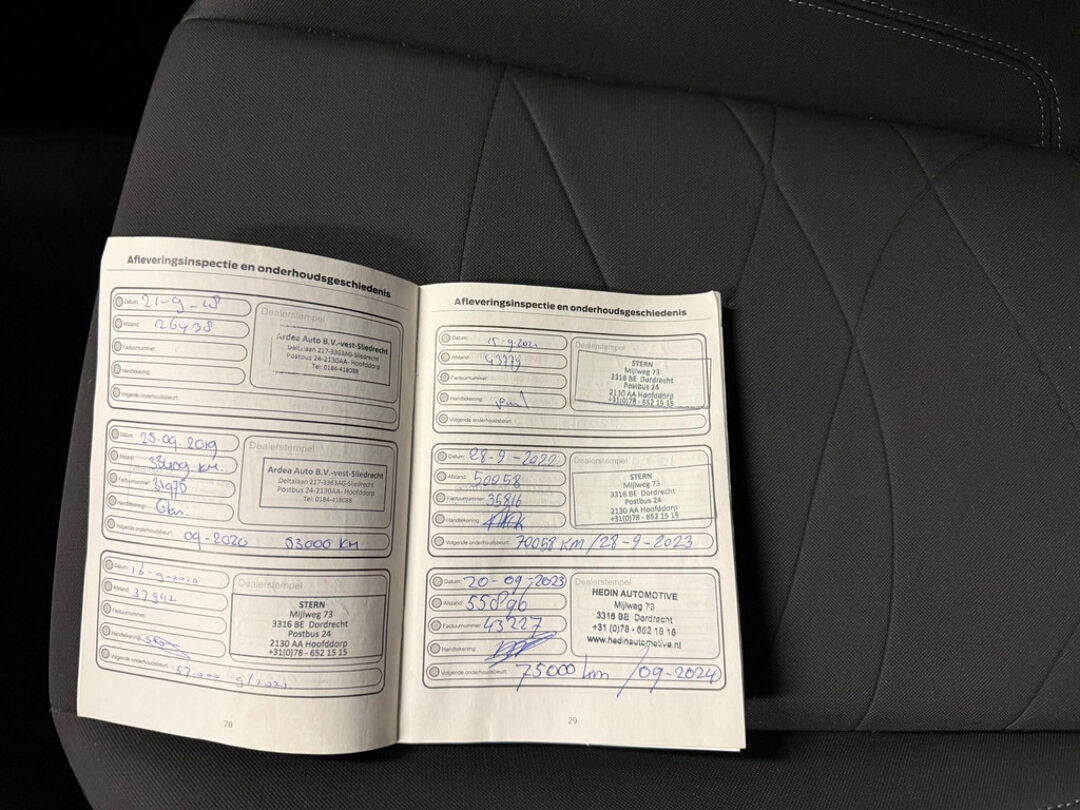 Afleveringsinspectie en onderhoudsgeschiedenis
Datum: 21-9-18
Afstand: 26438
Factuurnummer:
Handtekening:
Volgende onderhoudsbeurt:
Dealerstempel
Ardea Auto B.V.-vest-Sliedrecht
Deltalaan 217-3363AG-Sliedrecht
Postbus 24-2130AA- Hoofddorp
Tel: 0184-418088
Datum: 25-09-2019
Afstand: 33409 KM.
Factuurnummer: 31975
Handtekening:
Volgende onderhoudsbeurt: 09-2020 53000 KM
Dealerstempel
Ardea Auto B.V.-vest-Sliedrecht
Deltalaan 217-3363AG-Sliedrecht
Postbus 24-2130AA- Hoofddorp
Tel: 0184-418088
Datum: 16-9-2020
Afstand: 37942
Factuurnummer:
Handtekening:
Volgende onderhoudsbeurt: 57.000 9/2021
Dealerstempel
STERN
Mijlweg 73
3316 BE Dordrecht
Postbus 24
2130 AA Hoofddorp
+31(0)78 - 652 15 15
28
Afleveringsinspectie en onderhoudsgeschiedenis
Datum: 15-9-2021
Afstand: 43779
Factuurnummer:
Handtekening:
Volgende onderhoudsbeurt:
Dealerstempel
STERN
Mijlweg 73
3316 BE Dordrecht
Postbus 24
2130 AA Hoofddorp
+31(0)78 - 652 15 15
Datum: 28-9-2022
Afstand: 50058
Factuurnummer: 35816
Handtekening:
Volgende onderhoudsbeurt: 70058 KM / 28-9-2023
Dealerstempel
STERN
Mijlweg 73
3316 BE Dordrecht
Postbus 24
2130 AA Hoofddorp
+31(0)78 - 652 15 15
Datum: 20-09-2023
Afstand: 55896
Factuurnummer: 43227
Handtekening:
Volgende onderhoudsbeurt: 75000 km / 09-2024
Dealerstempel
HEDIN AUTOMOTIVE
Mijlweg 73
3316 BE Dordrecht
+31 (0)78 - 652 15 15
www.hedinautomotive.nl
29